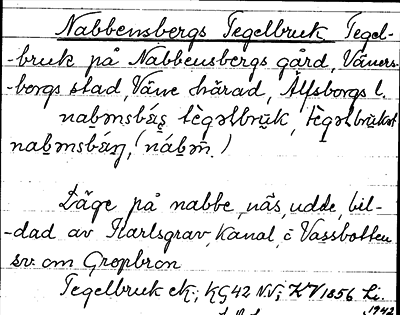 Nabbensbergs Tegelbruk Tegel-
-bruk på Nabbensbergs gård, Väners-
-borgs stad, Väne härad, Älfsborgs l.
nab̲əmsbǽrg tègəlbruk, tègəlbruket
nab̲əmsbǽrg, (náb̲əm̄.)
Läge på nabbe, näs, udde, bil-
-dad av Karlsgrav, kanal, o Vassbotten
sv. om Gropbron
Tegelbruk ek., KG42 N.V; KV 1856 Li.
1942